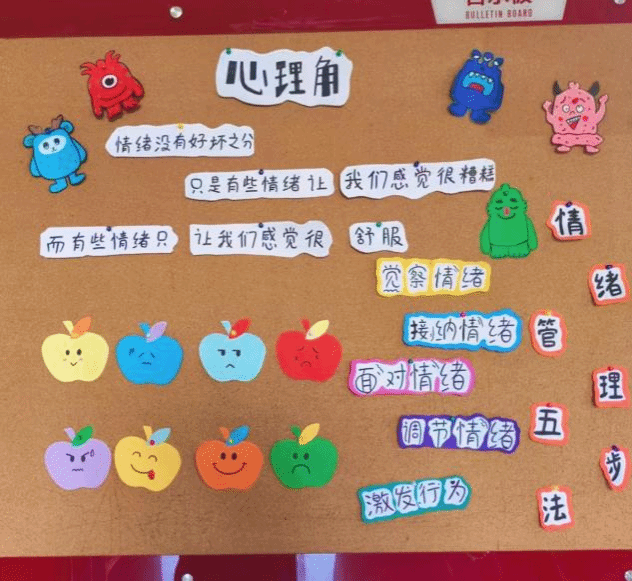 BULLETIN BOARD
心理角
情绪没有好坏之分
只是有些情绪让 我们感觉很糟糕
而有些情绪只 让我们感觉很 舒服
情绪管理五步法
觉察情绪
接纳情绪
面对情绪
调节情绪
激发行为